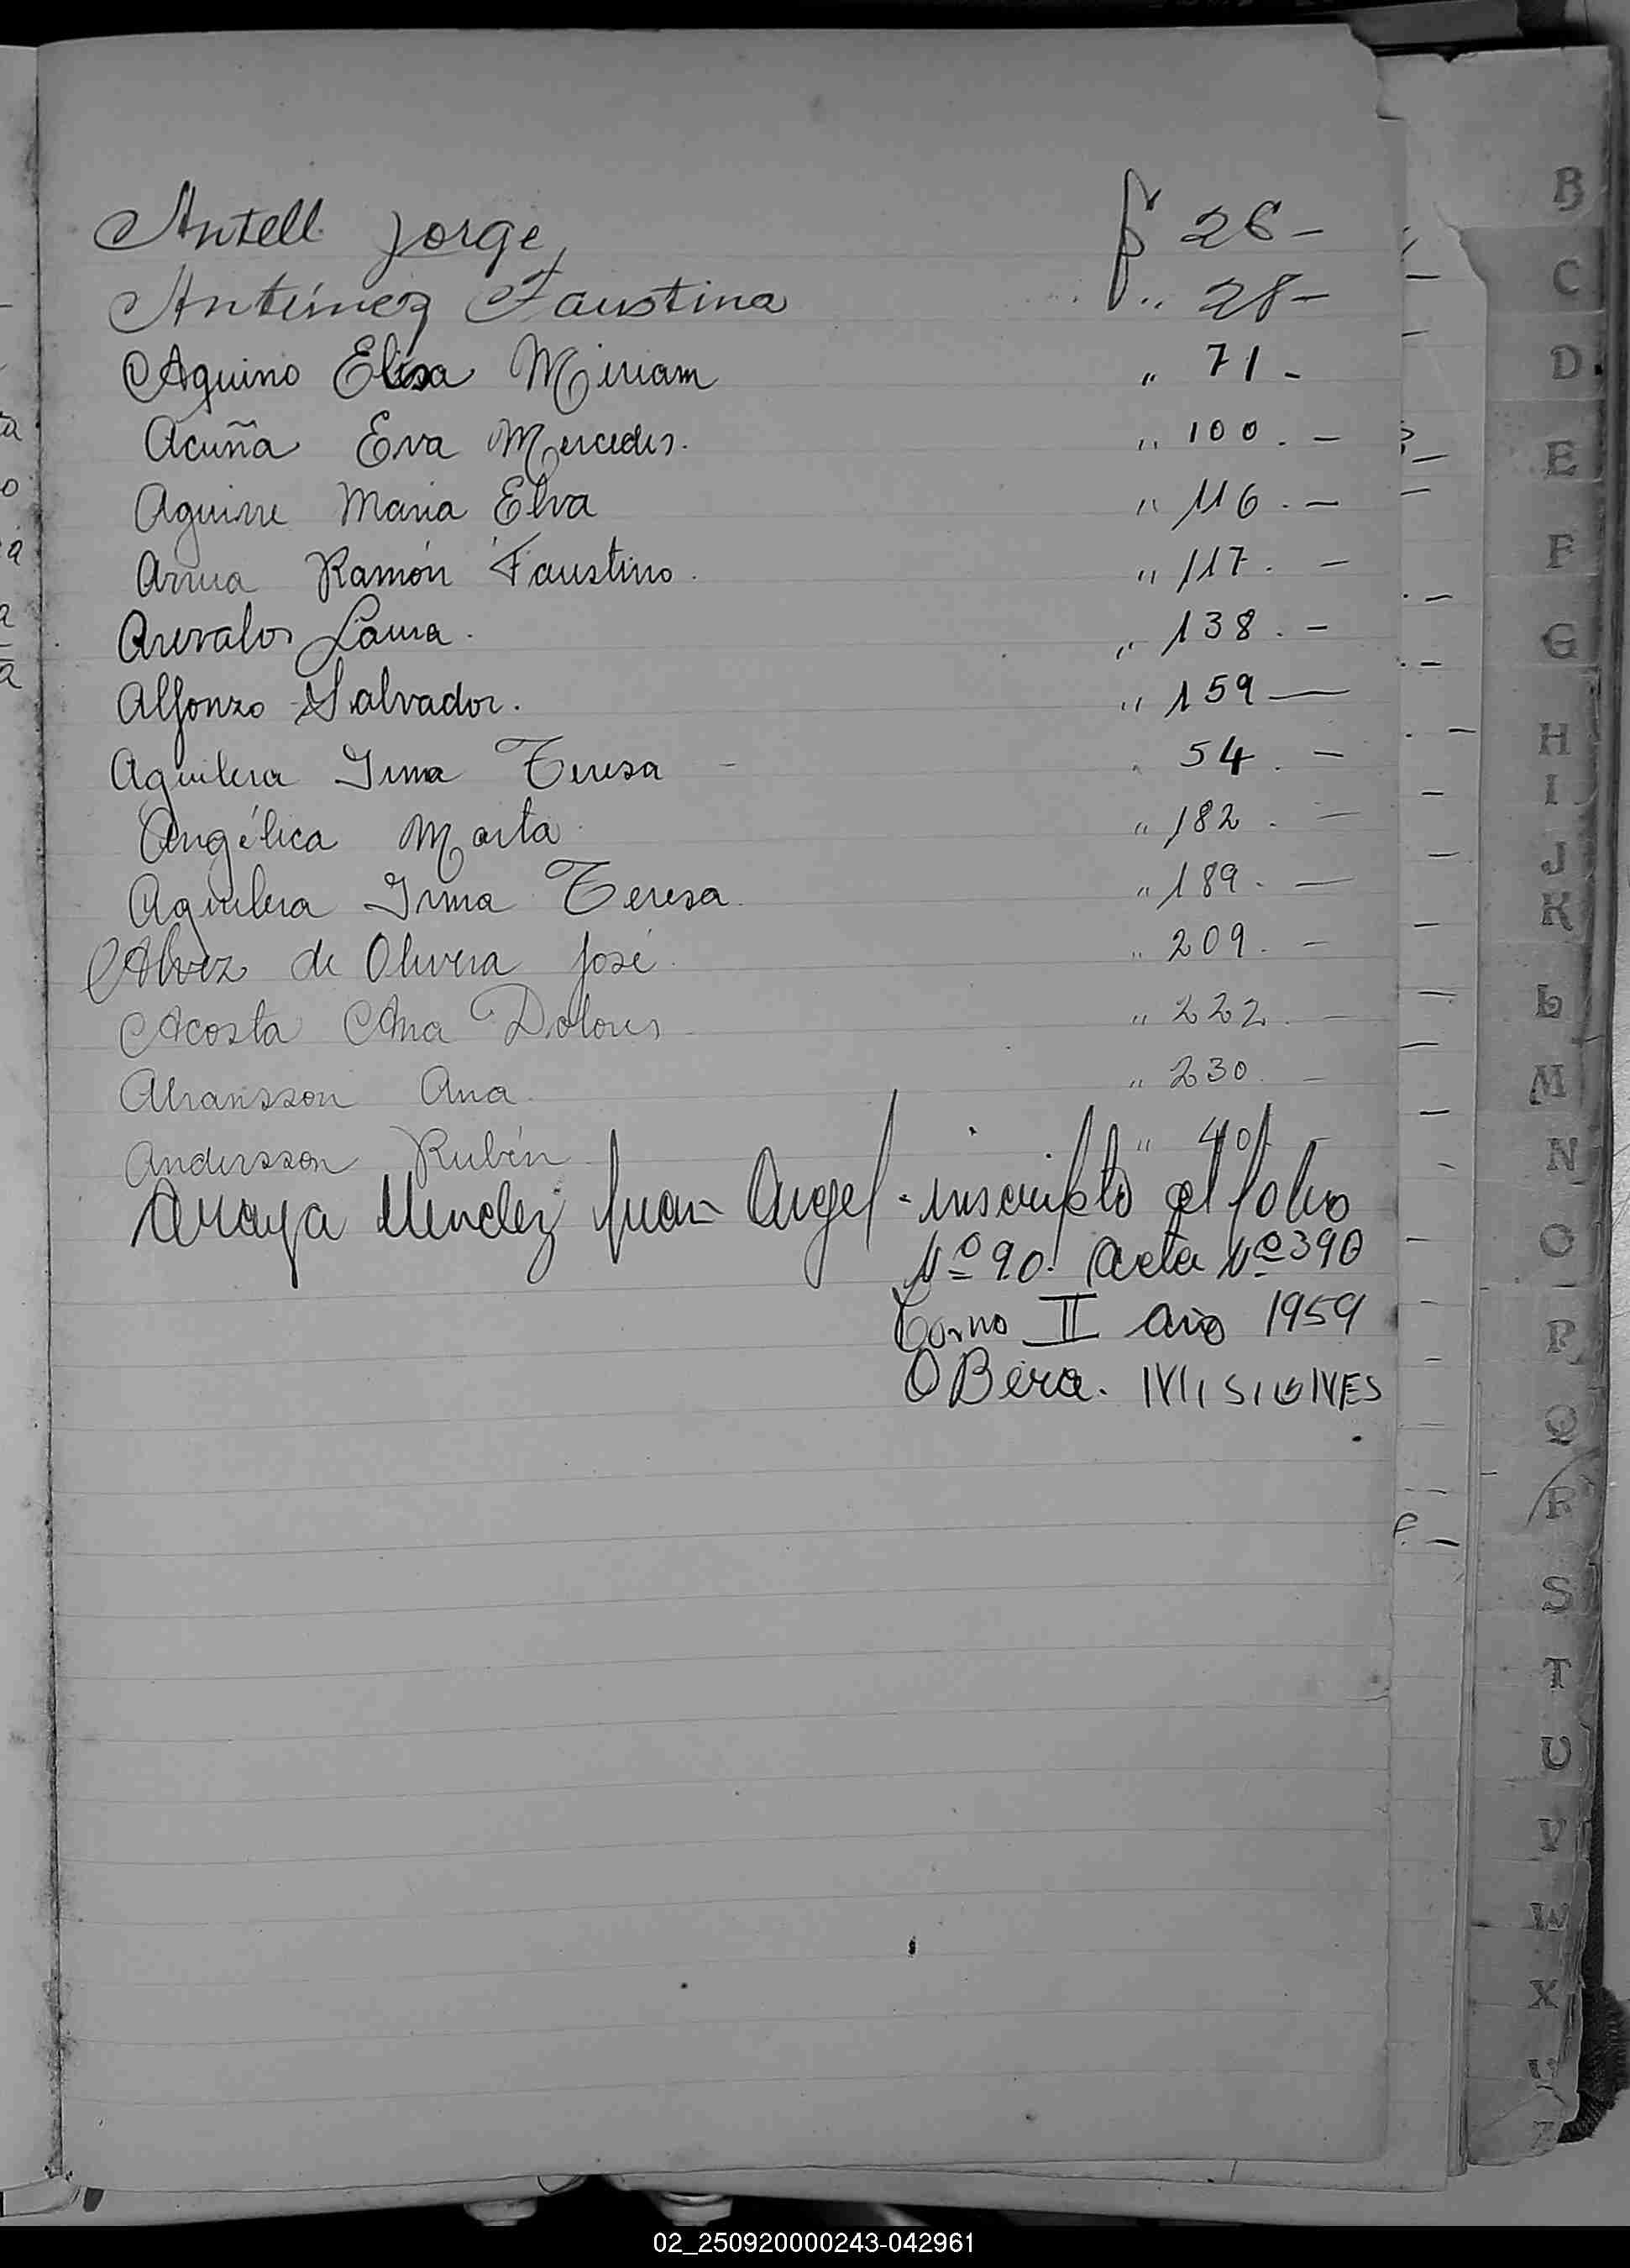 Antell Jorge f 26 –
Antúnez Faustina " 28 –
Aquino Elisa Miriam " 71 –
Acuña Eva Mercedes. " 100. –
Aguirre Maria Elva " 116. –
Arrua Ramón Faustino. " 117. –
Arevalos Laura. " 138. –
Alfonzo Salvador. " 159 —
Aguilera Irma Teresa – 54. –
Angélica Marta " 182. –
Aguilera Irma Teresa. " 189. –
Alvez de Olivera José. " 209. –
Acosta Ana Dolores " 222. –
Abransson Ana. " 230. –
Andersson Rubén " 40 –
Araya Mendez Juan Angel - inscripto al folio
Nº 90. Acta Nº 390
Tomo II año 1959
OBera. MISIONES
B
C
D
E
F
G
H
I
J
K
L
M
N
O
P
Q
R
S
T
U
V
W
X
Z
02_250920000243-042961